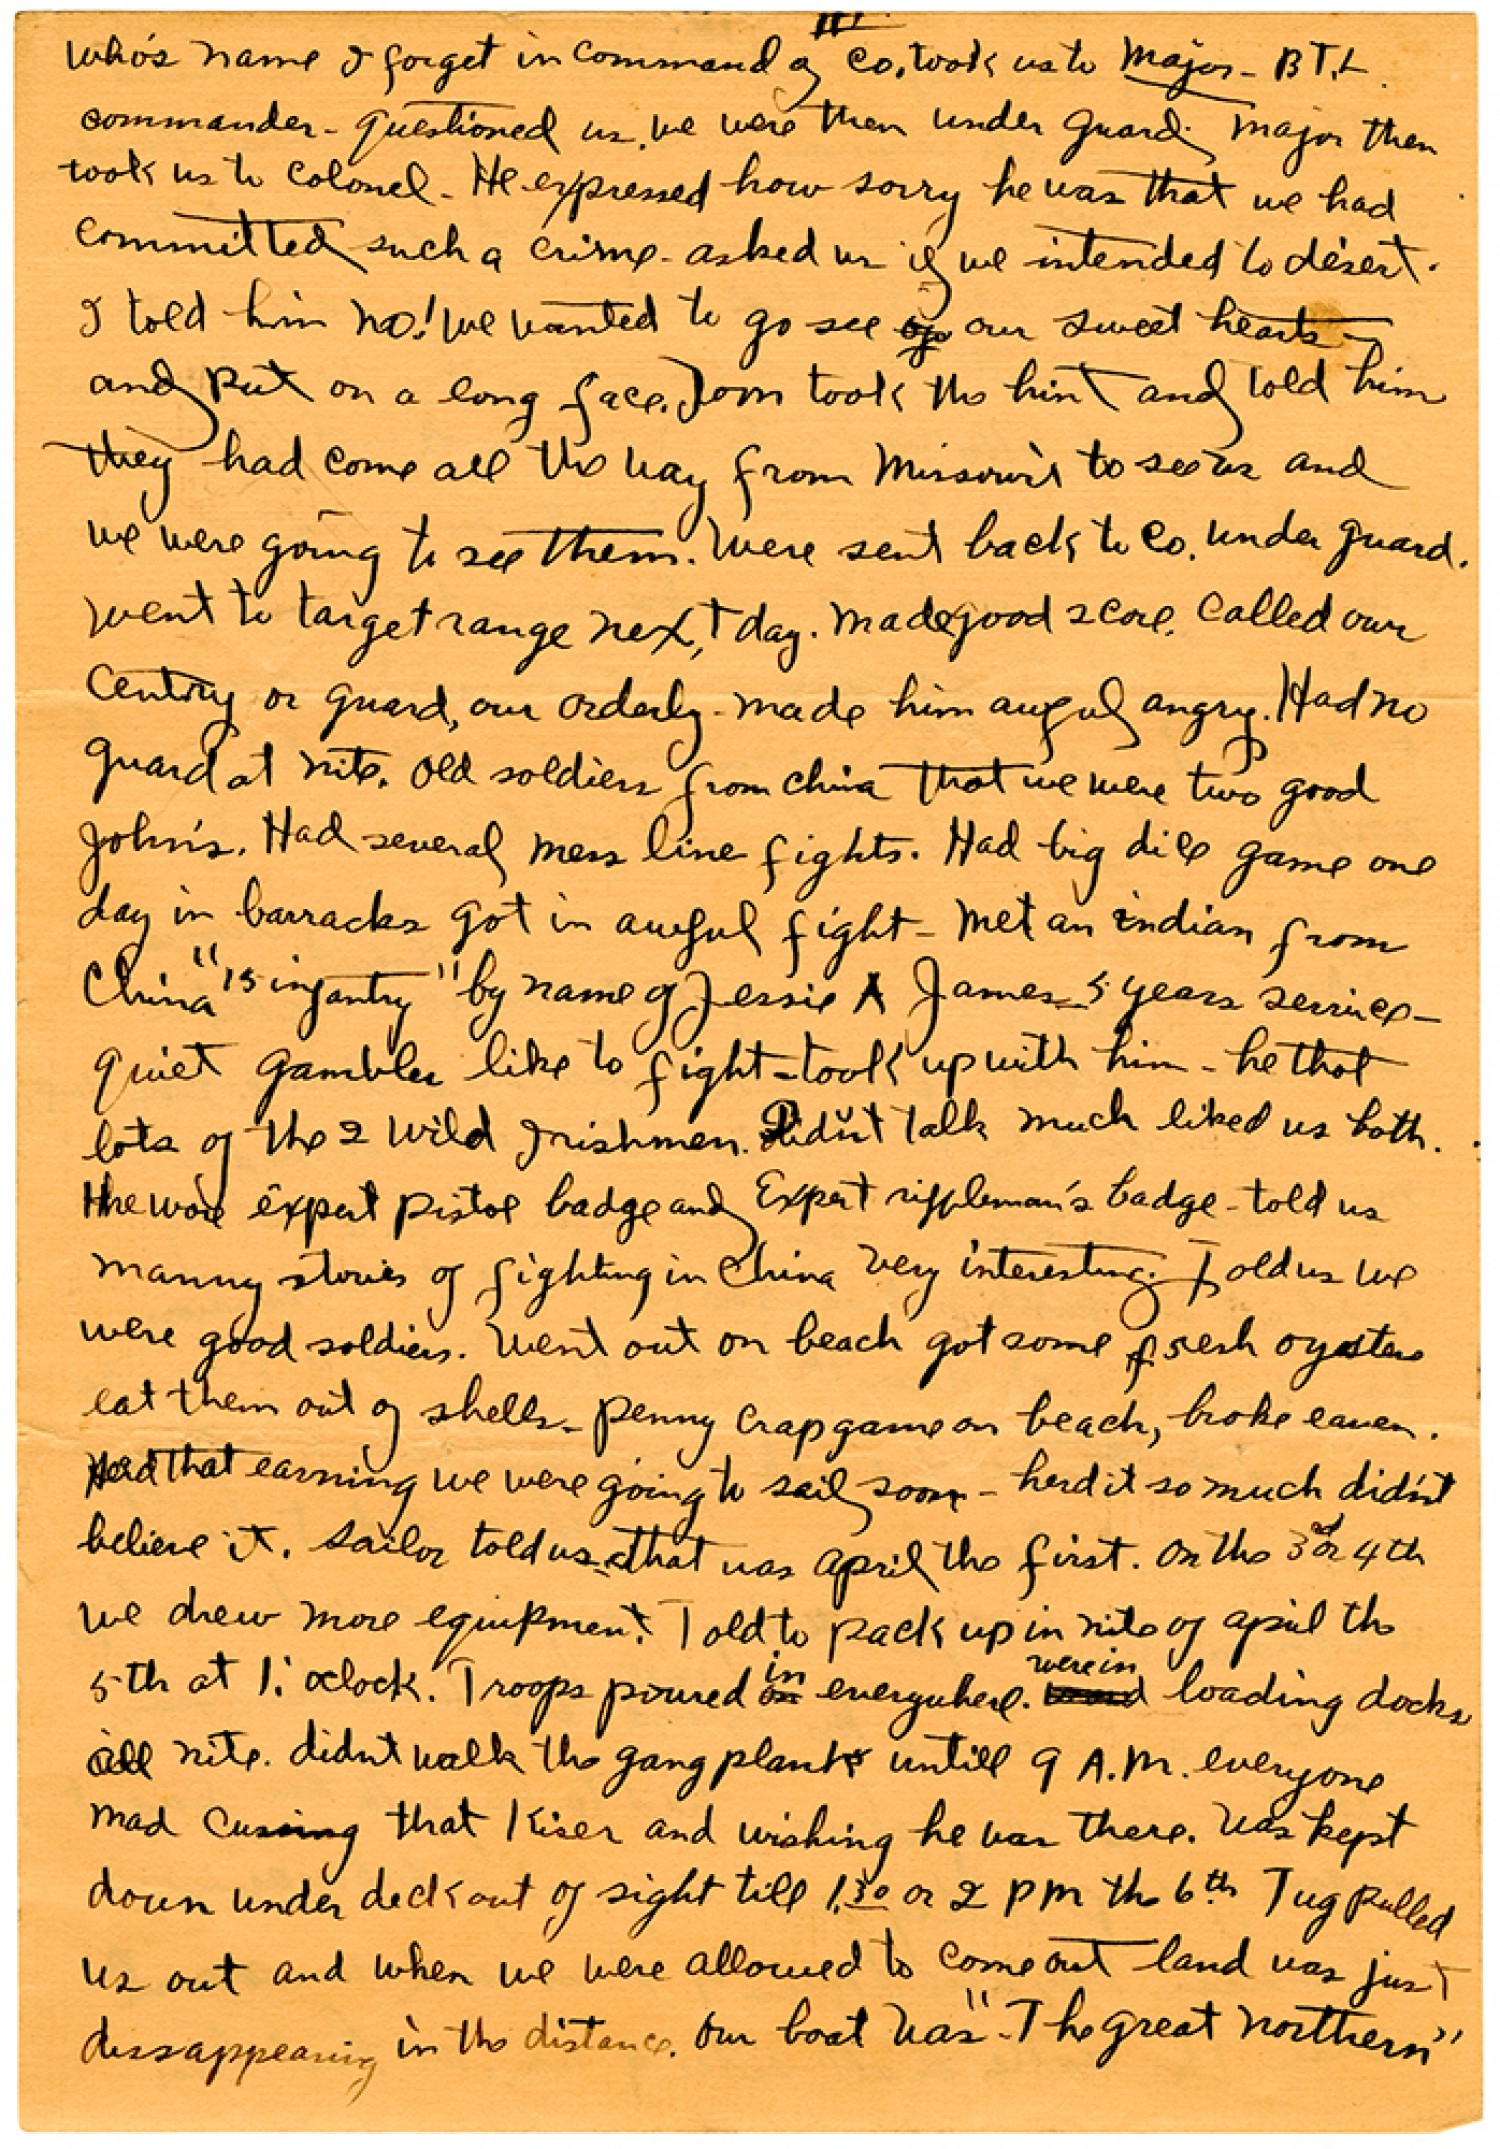 III.
Who's name I forget in command of Co. took us to Major - BTL.
commander - questioned us. we were then under guard. Major then
took us to Colonel - He expressed how sorry he was that we had
committed such a crime - asked us if we intended to desert.
I told him no! we wanted to go see our sweet hearts -
and put on a long face. Tom took the hint and told him
they had come all the way from Missouri to see us and
we were going to see them. Were sent back to Co. under guard.
went to target range next day. Made good score. Called our
Centry or guard, our orderly - made him awful angry. Had no
guard at nite. Old soldiers from China that we were two good
John's. Had several mess line fights. Had big dice game one
day in barracks got in awful fight - Met an indian from
China "15 infantry" by name of Jessie A James - 5 years service -
quiet gambler like to fight - took up with him - he that
lots of the 2 wild Irishmen. Didn't talk much liked us both.
He wore expert pistol badge and Expert riffleman's badge - told us
manny stories of fighting in China very interesting. Told us we
were good soldiers. Went out on beach got some fresh oysters
eat them out of shells - penny crap game on beach, broke eaven.
Herd that earning we were going to sail soon - herd it so much didn't
believe it. Sailor told us that was april the first. On the 3rd or 4th
we drew more equipment. Told to pack up in nite of april the
5th at 1: oclock. Troops poured in everywhere. were in loading docks
all nite. didnt walk the gang plank untill 9 A.M. everyone
mad cussing that Kiser and wishing he was there. Was kept
down under deck out of sight till 1.30 or 2 PM the 6th Tug pulled
us out and when we were allowed to come out land was just
dissappearing in the distance. Our boat was "The great northern"